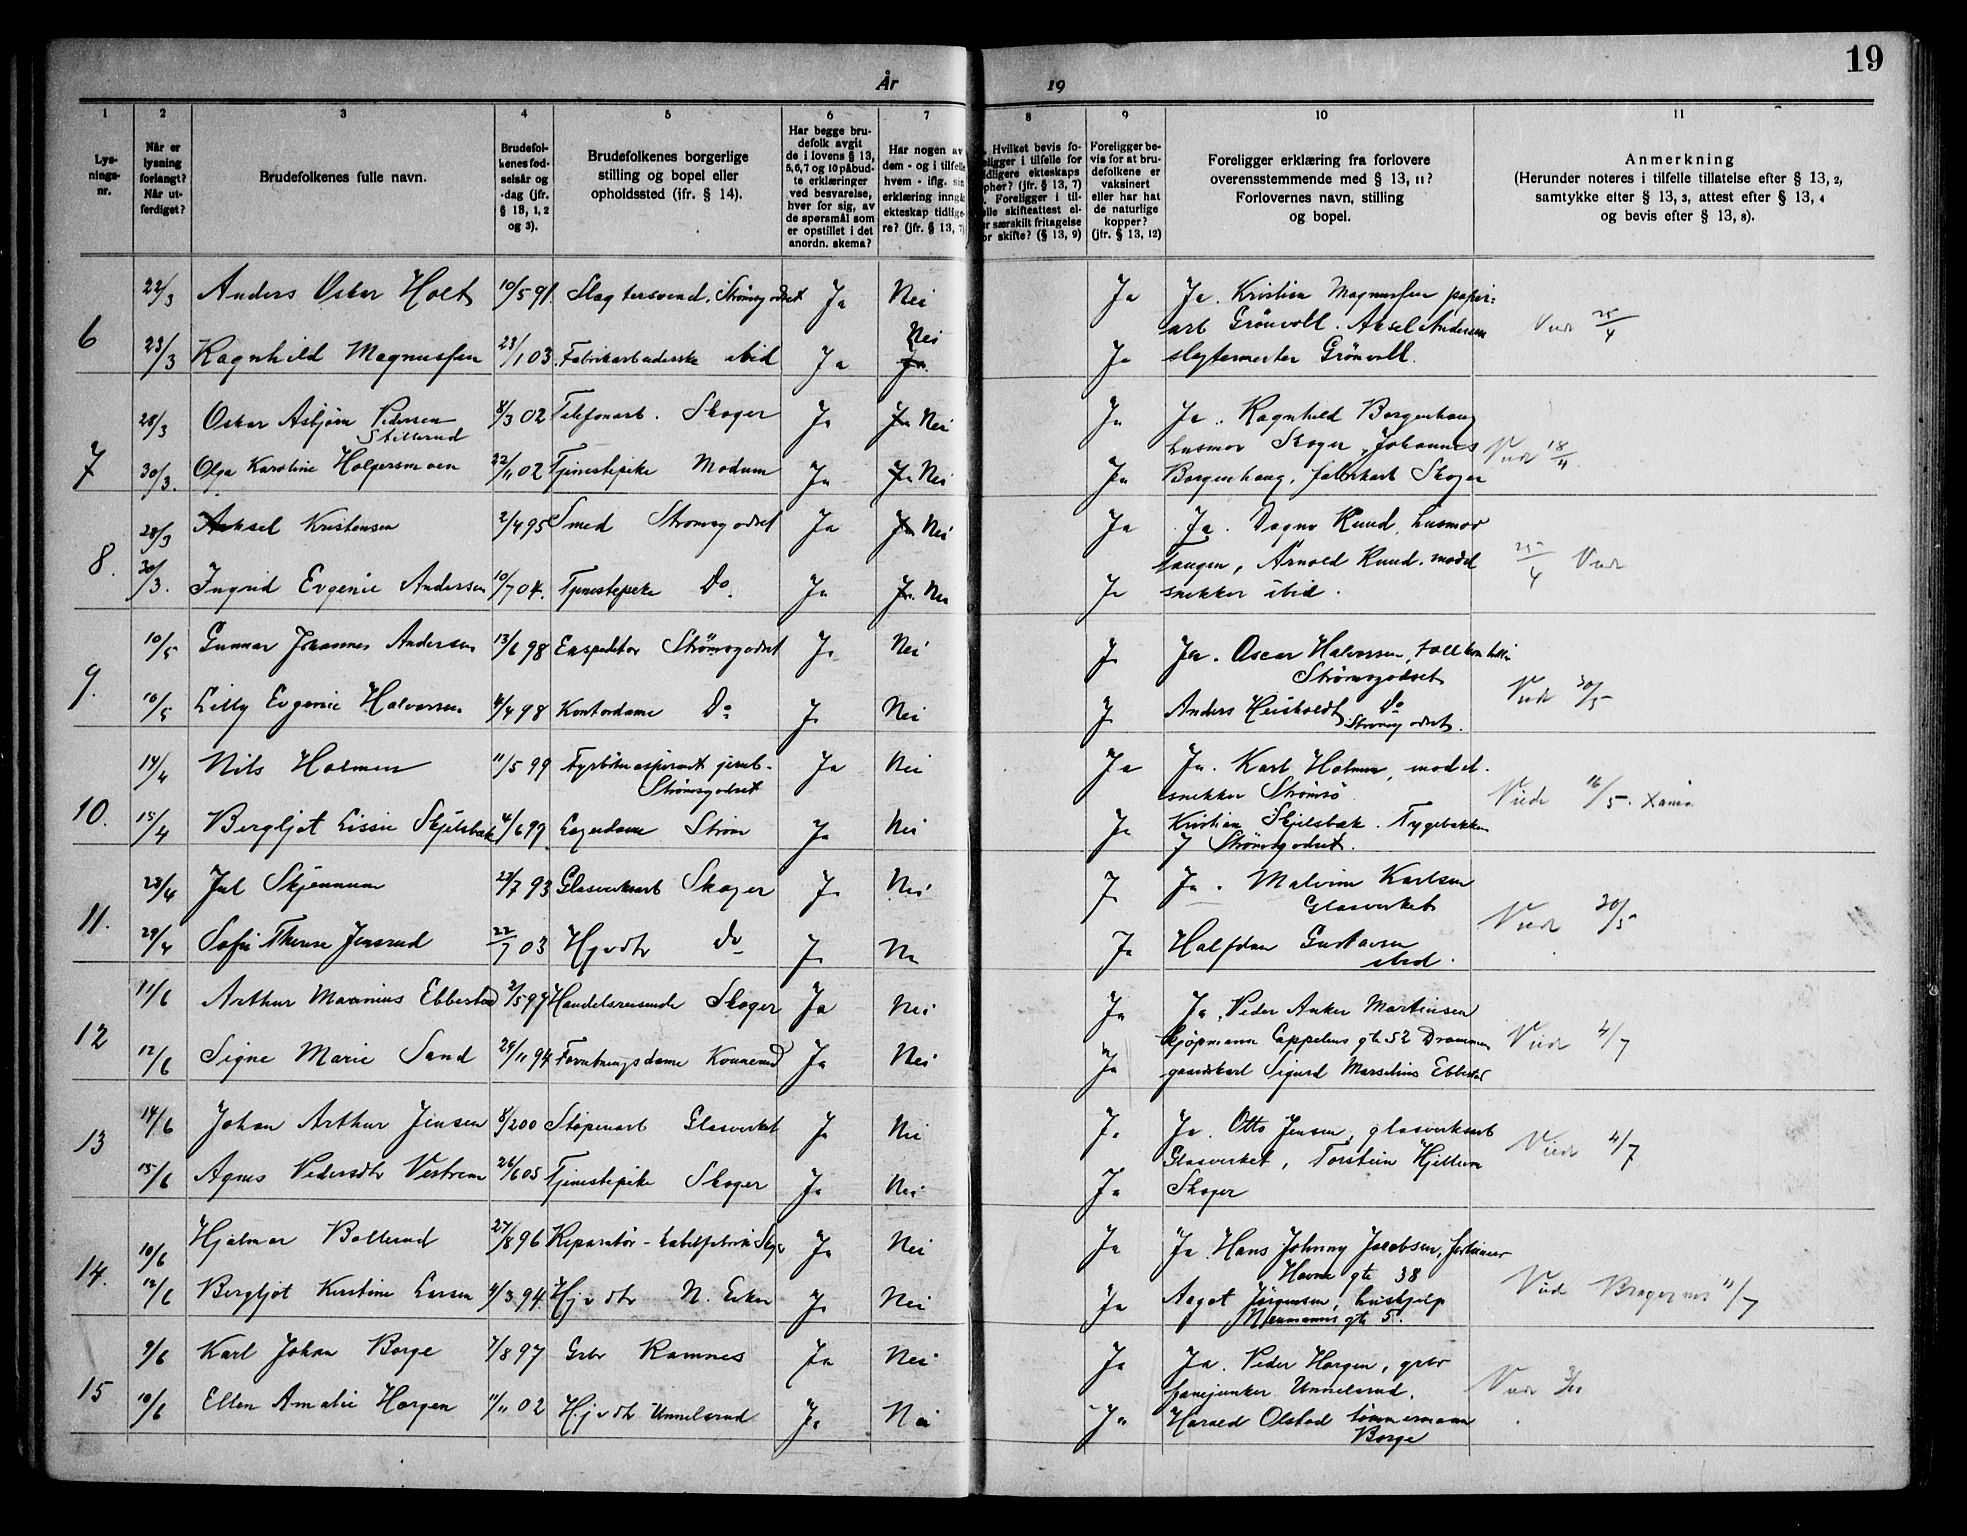 19
År 19
1 2 3 4 5 6 7 8 9 10 11
Lys-
nings-
nr.
Når er
lysning
forlangt?
Når ut-
ferdiget?
Brudefolkenes fulle navn.
Brudefol-
kenes fød-
selsår og
-dag (jfr.
§ 13, 1, 2
og 3).
Brudefolkenes borgerlige
stilling og bopel eller
opholdssted (jfr. § 14).
Har begge bru-
defolk avgit
de i lovens § 13,
5,6,7 og 10 påbud-
te erklæringer
ved besvarelse,
hver for sig, av
de spørsmål som
er opstillet i det
anordn. skema?
Har nogen av
dem - og i tilfelle
hvem - iflg. sin
erklæring inngåt
ekteskap tidlige-
re? (jfr. § 13, 7)
Hvilket bevis fo-
religger i tilfelle for
tidligere ekteskaps
ophør? (jfr. § 13, 7)
Foreligger i til-
felle skifteattest el-
ler særskilt fritagelse
for skifte? (§ 13, 9)
Foreligger be-
vis for at bru-
defolkene er
vaksinert
eller har hat
de naturlige
kopper?
(jfr. § 13, 12)
Foreligger erklæring fra forlovere
overensstemmende med § 13, 11?
Forlovernes navn, stilling
og bopel.
Anmerkning
(Herunder noteres i tilfelle tillatelse efter § 13, 2,
samtykke efter § 13, 3, attest efter § 13, 4
og bevis efter § 13, 8).
6
22/3 Anders Oskar Holt 10/5 91 Slagtersvend, Strømsgodset Ja Nei Ja Ja. Kristian Magnussen papir-
arb Grønvoll. Aksel Andersen
23/3 Ragnhild Magnussen 23/1 03 Fabrikarbeiderske ibid Ja Nei Ja slagtermester Grønvoll.
Viet 25/4
7
28/3 Oskar Asbjørn Pedersen
Stillerud 8/3 02 Telefonarb. Skoger Ja Ja Nei Ja Ja. Ragnhild Borgenhaug
husmor Skoger, Johannes
30/3. Olga Karoline Holpersmoen 22/11 02 Tjenestepike Modum Ja Ja Nei Ja Borgenhaug, fabrikarb Skoger
Viet 18/4.
8.
28/3 Aksel Kristensen 2/4 95 Smed Strømsgodset Ja Ja Nei Ja Ja. Dagny Ruud, husmor
Tangen, Arnold Ruud. model
30/3. Ingrid Evgenie Andersen 10/7 04. Tjenestepike Do. Ja Ja. Nei Ja snekker ibid.
25/4 Viet
9.
10/5 Gunnar Johannes Andersen 13/6 98 Expeditør Strømsgodset Ja Nei Ja Ja. Oscar Halvorsen,
Strømsgodset
10/5 Lilly Evgenie Halvorsen 4/4 98 Kontordame Do Ja Nei Ja Anders Heisholdt Do
Strømsgodset.
Viet 30/5
10.
14/4 Nils Holmen 11/5 99 Fyrbøteraspirant jernb-
Strømsgodset Ja Nei Ja Ja. Karl Holmen, model.
snekker Strømsø
15/4 Bergljot Lissie Skjelsbæk 4/6 99 Lagerdame Strøm Ja Nei Ja Kristian Skjelsbæk. Tygebakken
7 Strømsgodset.
Viede 16/5. Xania
11.
28/4 Jul Skjennum 28/7 93 Glasverksarb Skoger Ja Nei Ja Ja. Malvin Karlsen
Glasverket
29/4 Sofie Therese Jensrud 22/7 03 Hjvdtr Do Ja Nei Ja Halfdan Gustavsen
ibid.
Viet 30/5
12
11/6 Arthur Marinius Ebbestad 2/5 99 Handelsreisende Skoger Ja Nei Ja Ja. Peder Anker Martinsen
kjøpmann Cappelens gt 52 Drammen
12/6 Signe Marie Sand 24/11 94 Forretningsdame Konnerud Ja Nei Ja gaardskarl Sigurd Marselius Ebbestad
Viet 4/7
13
14/6 Johan Arthur Jensen 8/2 00 Støperiarb Glasverket Ja Nei Ja Ja. Otto Jensen, glasverksarb
Glasverket, Torstein Hjellum
15/6 Agnes Pedersdtr Vestrum 26/6 05 Tjenestepike Skoger Ja Nei Ja Skoger
Viet 4/7
14.
10/6 Hjalmar Bollerud 27/8 96 Reparatør - kabelfabrik Skog Ja Nei Ja Ja. Hans Johnny Jacobsen,
Havne gt 38
12/6 Bergljot Kirstine Larsen 4/3 94 Hjvdtr N. Eiker Ja Nei Ja Aagot Jørgensen, hushjelp
Neumanns gt 5.
Viet Bragernes 11/7
15
9/6 Karl Johan Borge 7/8 97 Grbr Ramnes Ja Nei Ja Ja. Peder Horgen, grbr
fanejunker Unnelsrud.
10/6 Ellen Amalie Horgen 11/11 02 Hjvdtr Unnelsrud Ja Nei Ja Harald Olstad tømmermann
Borge
Viet